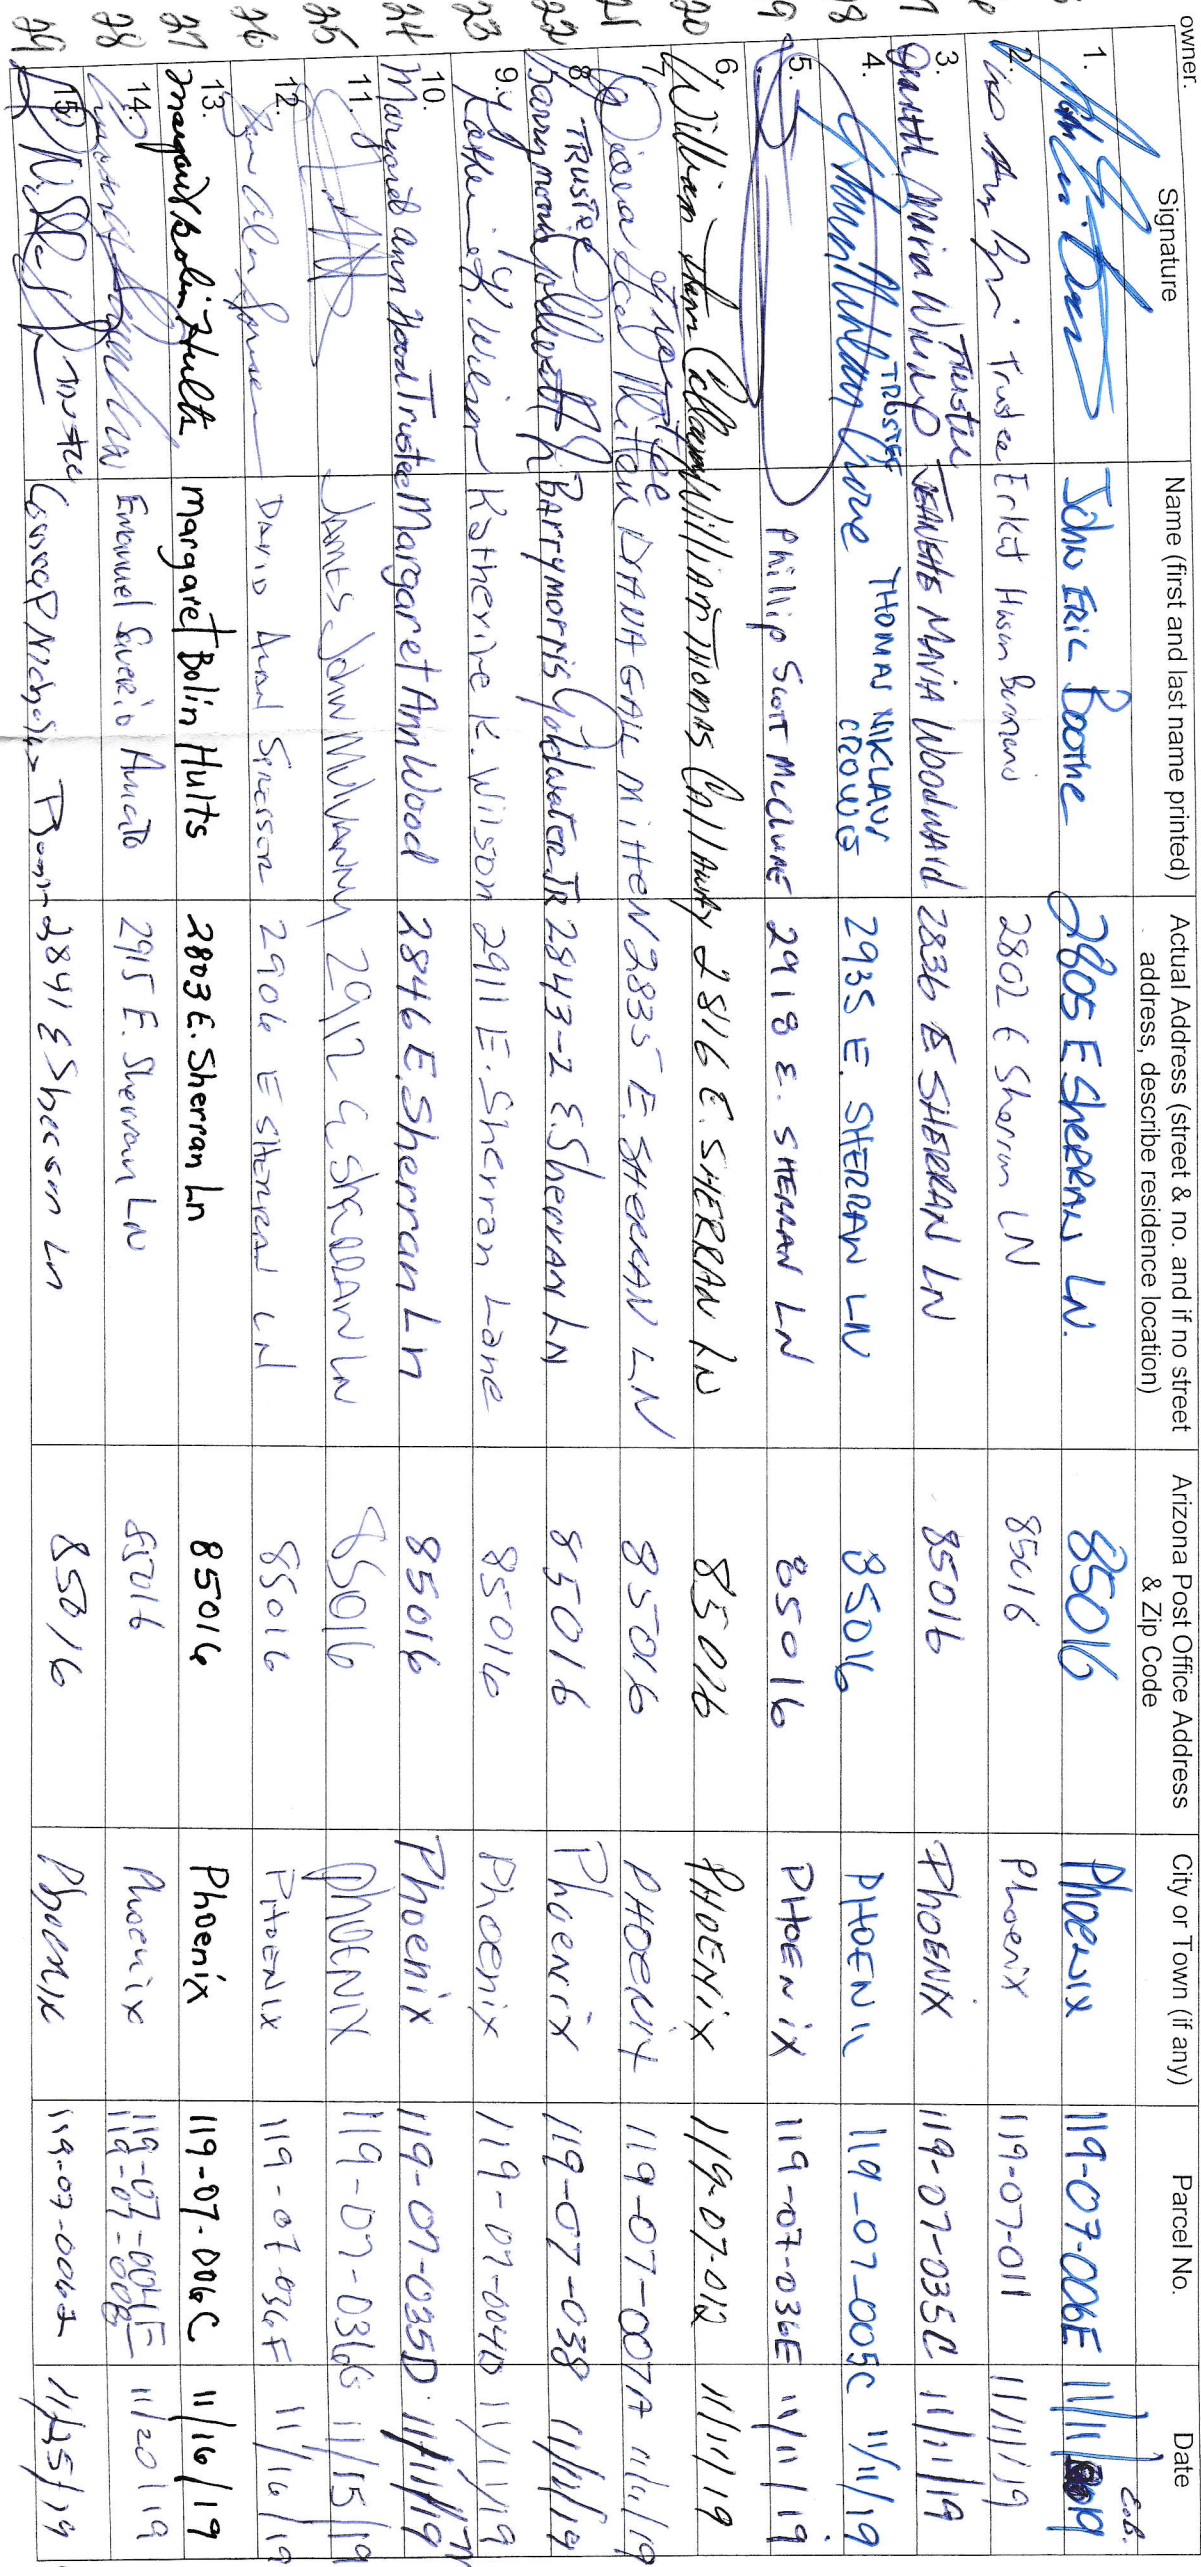 owner.
Signature
Name (first and last name printed)
Actual Address (street & no. and if no street address, describe residence location)
Arizona Post Office Address & Zip Code
City or Town (if any)
Parcel No.
Date
E.B.
1. John Eric Boothe 2805 E Sherran LN. 85016 Phoenix 119-07-006E 11/11/2019
2. Trustee Husam 2802 E Sherran LN 85016 Phoenix 119-07-011 11/11/19
17 3. Trustee JEANETTE MARIA WOODWARD 2836 E SHERRAN LN 85016 PhOENIX 119-07-035C 11/11/19
18 4. TRUSTEE THOMAS NIKLAUS CROWE 2935 E. SHERRAN LN 85016 PHOENIX 119-07-005C 11/11/19
19 5. Phillip Scott McClure 2918 E. SHERRAN LN 85016 PHOENIX 119-07-036E 11/11/19
20 6. William Thomas Callaway William THOMAS CALLAWAY 2816 E. SHERRAN LN 85016 PHOENIX 119-07-012 11/11/19
21 7. Trustee DIANA GAIL MITTEN 2835 E. SHERRAN LN 85016 PHOENIX 119-07-007A 11/11/19
22 8. TRUSTEE Barry Morris Goldwater JR 2843-2 E. Sherran LN 85016 Phoenix 119-07-038 11/11/19
23 9. Katherine K. Wilson Katherine K. Wilson 2911 E. Sherran Lane 85016 Phoenix 119-07-004D 11/11/19
24 10. Margaret Ann Wood Trustee Margaret Ann Wood 2846 E. Sherran Ln 85016 Phoenix 119-07-035D 11/11/19
25 11. JAMES John MULVANNY 2912 E SHERRAN LN 85016 PHOENIX 119-07-036G 11/15/19
26 12. DAVID ALAN 2906 E SHERRAN LN 85016 PHOENIX 119-07-036F 11/16/19
27 13. Margaret Bolin Hults Margaret Bolin Hults 2803 E. Sherran Ln 85016 Phoenix 119-07-006C 11/16/19
28 14. Emanuel Saverio Amato 2915 E. Sherran LN 85016 Phoenix 119-07-004E 11/20/19
29 15. Trustee 2841 E Sherran Ln 85016 Phoenix 11/25/19